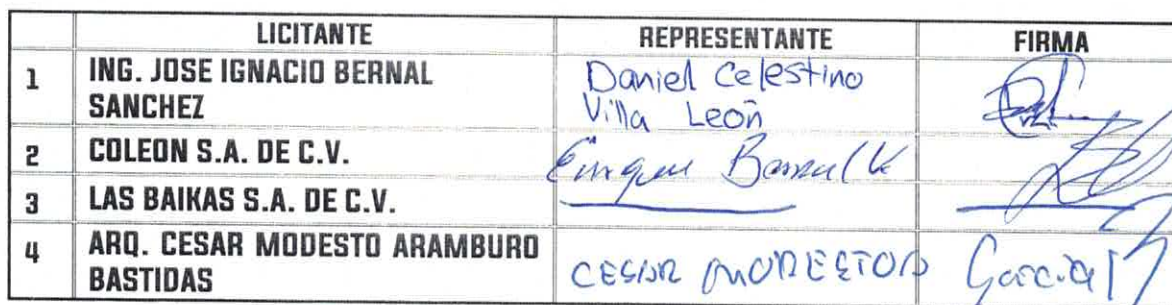 LICITANTE REPRESENTANTE FIRMA
1 ING. JOSE IGNACIO BERNAL Daniel Celestino
SANCHEZ Villa León
2 COLEON S.A. DE C.V. Enrique
3 LAS BAIKAS S.A. DE C.V.
4 ARQ. CESAR MODESTO ARAMBURO
BASTIDAS CESAR MODESTO